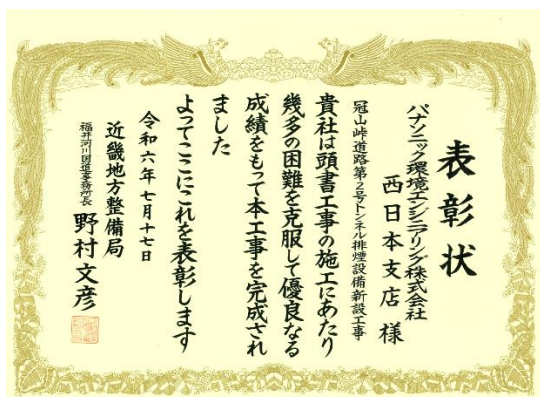 表彰状
パナソニック環境エンジニアリング株式会社
西日本支店 様
冠山峠道路第2号トンネル排煙設備新設工事
貴社は頭書工事の施工にあたり
幾多の困難を克服して優良なる
成績をもって本工事を完成され
ました
よってここにこれを表彰します
令和六年七月十七日
近畿地方整備局
福井河川国道事務所長 野村文彦